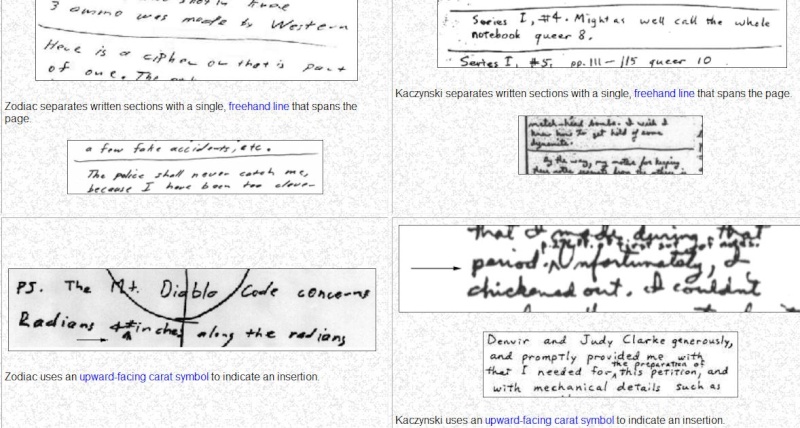 3 ammo was made by Western
Here is a cipher or that is part
of one. The
Zodiac separates written sections with a single, freehand line that spans the
page.
a few fake accidents, etc.
The police shall never catch me,
because I have been too clever
PS. The Mt. Diablo Code concerns
Radians & # inches along the radians
Zodiac uses an upward-facing carat symbol to indicate an insertion.
Series I, #4. Might as well call the whole
notebook queer 8.
Series I, #5, pp. 111 – 115 queer 10
Kaczynski separates written sections with a single, freehand line that spans the page.
match-head bombs. I wish I
knew how to get hold of some
dynamite.
By the way, my motive for keeping
these notes separate from the others is
that I made during that
period. Unfortunately, I
chickened out. I couldn't
Denvir and Judy Clarke generously,
and promptly provided me with
the preparation of
that I needed for ^ this petition, and
with mechanical details such as
Kaczynski uses an upward-facing carat symbol to indicate an insertion.